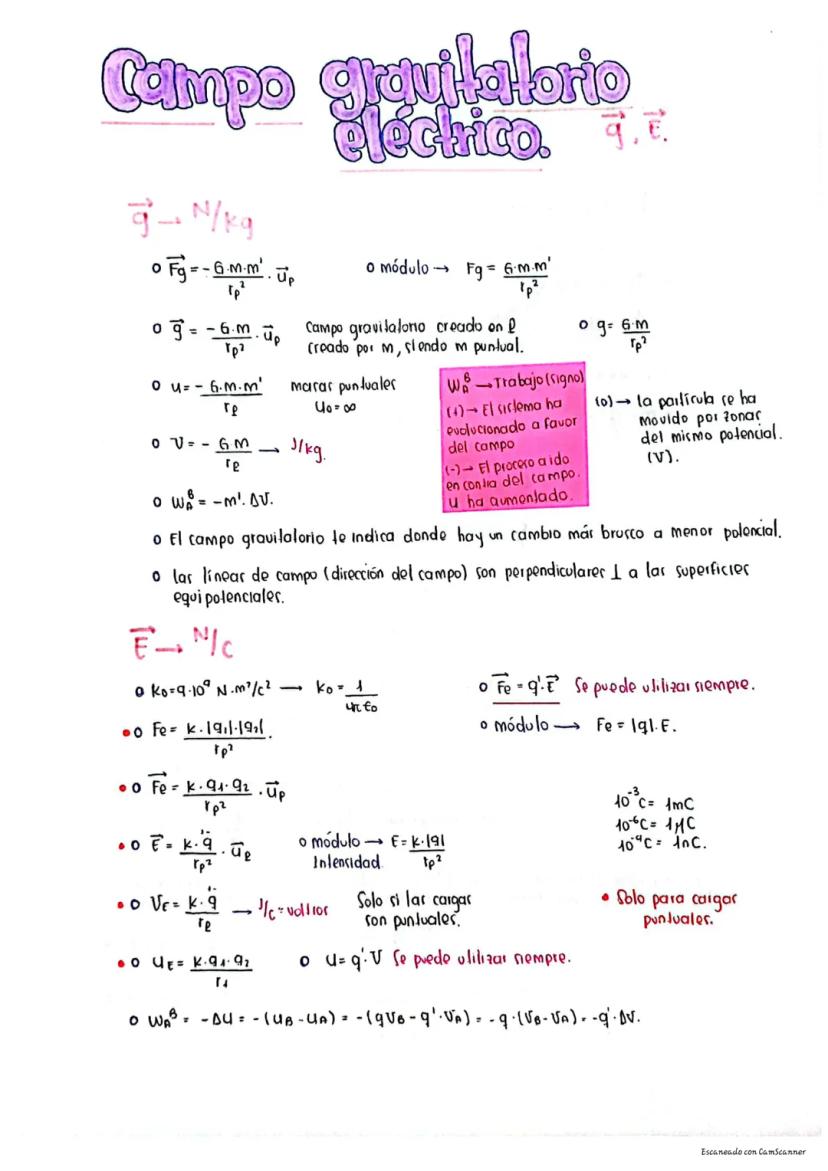 Campo gravitatorio
eléctrico. g⃗, E⃗.
g⃗ → N/kg
o F⃗g = - G·m·m' / rp² · u⃗p   o módulo → Fg = G·m·m' / rp²
o g⃗ = - G·m / rp² · u⃗p   Campo gravitatorio creado en P   o g = G·m / rp²
creado por m, siendo m puntual.
o U = - G·m·m' / rP   masas puntuales
U0 = ∞
o V = - G m / rP → J/kg.
o W_A^B = -m'·ΔV.
W_A^B → Trabajo (signo)
(+) → El sistema ha
evolucionado a favor
del campo
(-) → El proceso a ido
en contra del campo.
U ha aumentado.
(0) → la partícula se ha
movido por zonas
del mismo potencial.
(V).
o El campo gravitatorio te indica donde hay un cambio más brusco a menor potencial.
o las líneas de campo (dirección del campo) son perpendiculares ⊥ a las superficies
equipotenciales.
E⃗ → N/C
o K0 = 9·10⁹ N·m²/c² → K0 = 1 / 4πε0   o F⃗e = q'·E⃗ Se puede utilizar siempre.
• o Fe = K·|q1|·|q2| / rp².   o módulo → Fe = |q|·E.
• o F⃗e = K·q1·q2 / rp² · u⃗p
10⁻³C = 1mC
10⁻⁶C = 1μC
10⁻⁹C = 1nC.
• o E⃗ = K·q / rp² · u⃗P   o módulo → E = K·|q| / rp²
Intensidad
• o VE = K·q / rP → J/C = voltios   Solo si las cargas
son puntuales.
• Solo para cargas
puntuales.
• o UE = K·q1·q2 / r1   o U = q'·V Se puede utilizar siempre.
o W_A^B = -ΔU = -(UB - UA) = -(qVB - q'·VA) = -q·(VB - VA) = -q'·ΔV.
Escaneado con CamScanner